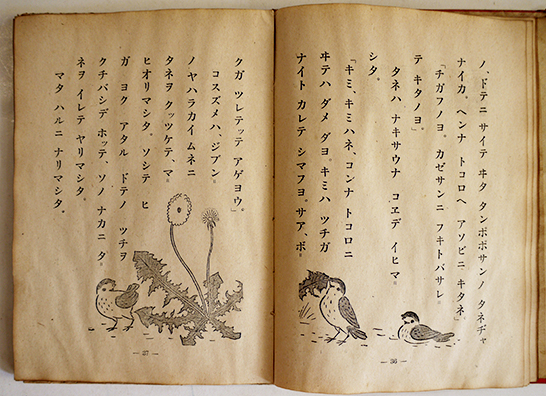 ノ、ドテニ サイテ ヰタ タンポポサンノ タネヂャ
ナイカ。ヘンナ トコロヘ アソビニ キタネ」
「チガフノヨ。カゼサンニ フキトバサレ
テ キタノヨ」
タネハ、ナキサウナ コヱデ イヒマ
シタ。
「キミ、キミハネ、コンナ トコロニ
ヰテハ ダメ ダヨ。キミハ ツチガ
ナイト カレテ シマフヨ。サア、ボ
— 36 —
クガ ツレテッテ アゲヨウ」
コスズメハ、ジブン
ノ ヤハラカイ ムネニ
タネヲ クッツケテ、マ
ヒオリマシタ。ソシテ ヒ
ガ ヨク アタル ドテノ ツチヲ
クチバシデ ホッテ、ソノ ナカニ タ
ネヲ イレテ ヤリマシタ。
マタ ハルニ ナリマシタ。
— 37 —